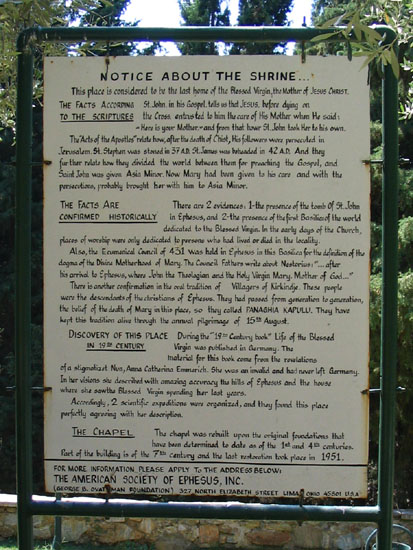 NOTICE ABOUT THE SHRINE...
This place is considered to be the last home of the Blessed Virgin, the Mother of JESUS CHRIST.
THE FACTS ACCORDING St. John, in his Gospel, tells us that JESUS, before dying on
TO THE SCRIPTURES the Cross, entrusted to him the care of His Mother when He said:
"Here is your Mother" and from that hour St. John took Her to his own.
The "Acts of the Apostles" relate how, after the death of Christ, His followers were persecuted in
Jerusalem. St. Stephen was stoned in 37 A.D. St. James was beheaded in 42 A.D. And they
further relate how they divided the world between them for preaching the Gospel, and
Saint John was given Asia Minor. Now Mary had been given to his care and with the
persecutions, probably brought her with him to Asia Minor.
THE FACTS ARE There are 2 evidences: 1- the presence of the tomb Of St. John
CONFIRMED HISTORICALLY in Ephesus, and 2- the presence of the first Basilica of the world
dedicated to the Blessed Virgin. In the early days of the Church,
places of worship were only dedicated to persons who had lived or died in the locality.
Also, the Ecumenical Council of 431 was held in Ephesus in this Basilica for the definition of the
dogma of the Divine Motherhood of Mary. The Council Fathers write about Nestorius: "... after
his arrival to Ephesus, where John the Theologian and the Holy Virgin Mary, Mother of God..."
There is another confirmation in the oral tradition of Villagers of Kirkindje. These people
were the descendants of the christians of Ephesus. They had passed from generation to generation,
the belief of the death of Mary in this place, so they called PANAGHIA KAPULU. They have
kept this tradition alive through the annual pilgrimage of 15th August.
DISCOVERY OF THIS PLACE During the "19th Century book" Life of the Blessed
IN 19TH CENTURY Virgin was published in Germany. The
material for this book come from the revelations
of a stigmatized Nun, Anna Catherina Emmerich. She was an invalid and had never left Germany.
In her visions she described with amazing accuracy the hills of Ephesus and the house
where she saw the Blessed Virgin spending her last years.
Accordingly, 2 scientific expeditions were organized, and they found this place
perfectly agreeing with her description.
THE CHAPEL The chapel was rebuilt upon the original foundations that
have been determined to date as of the 1st and 4th centuries.
Part of the building is of the 7th century and the last restoration took place in 1951.
FOR MORE INFORMATION, PLEASE APPLY TO THE ADDRESS BELOW:
THE AMERICAN SOCIETY OF EPHESUS, INC.
(GEORGE B. FOUNDATION) 327 NORTH ELIZABETH STREET LIMA, OHIO 45801 U.S.A